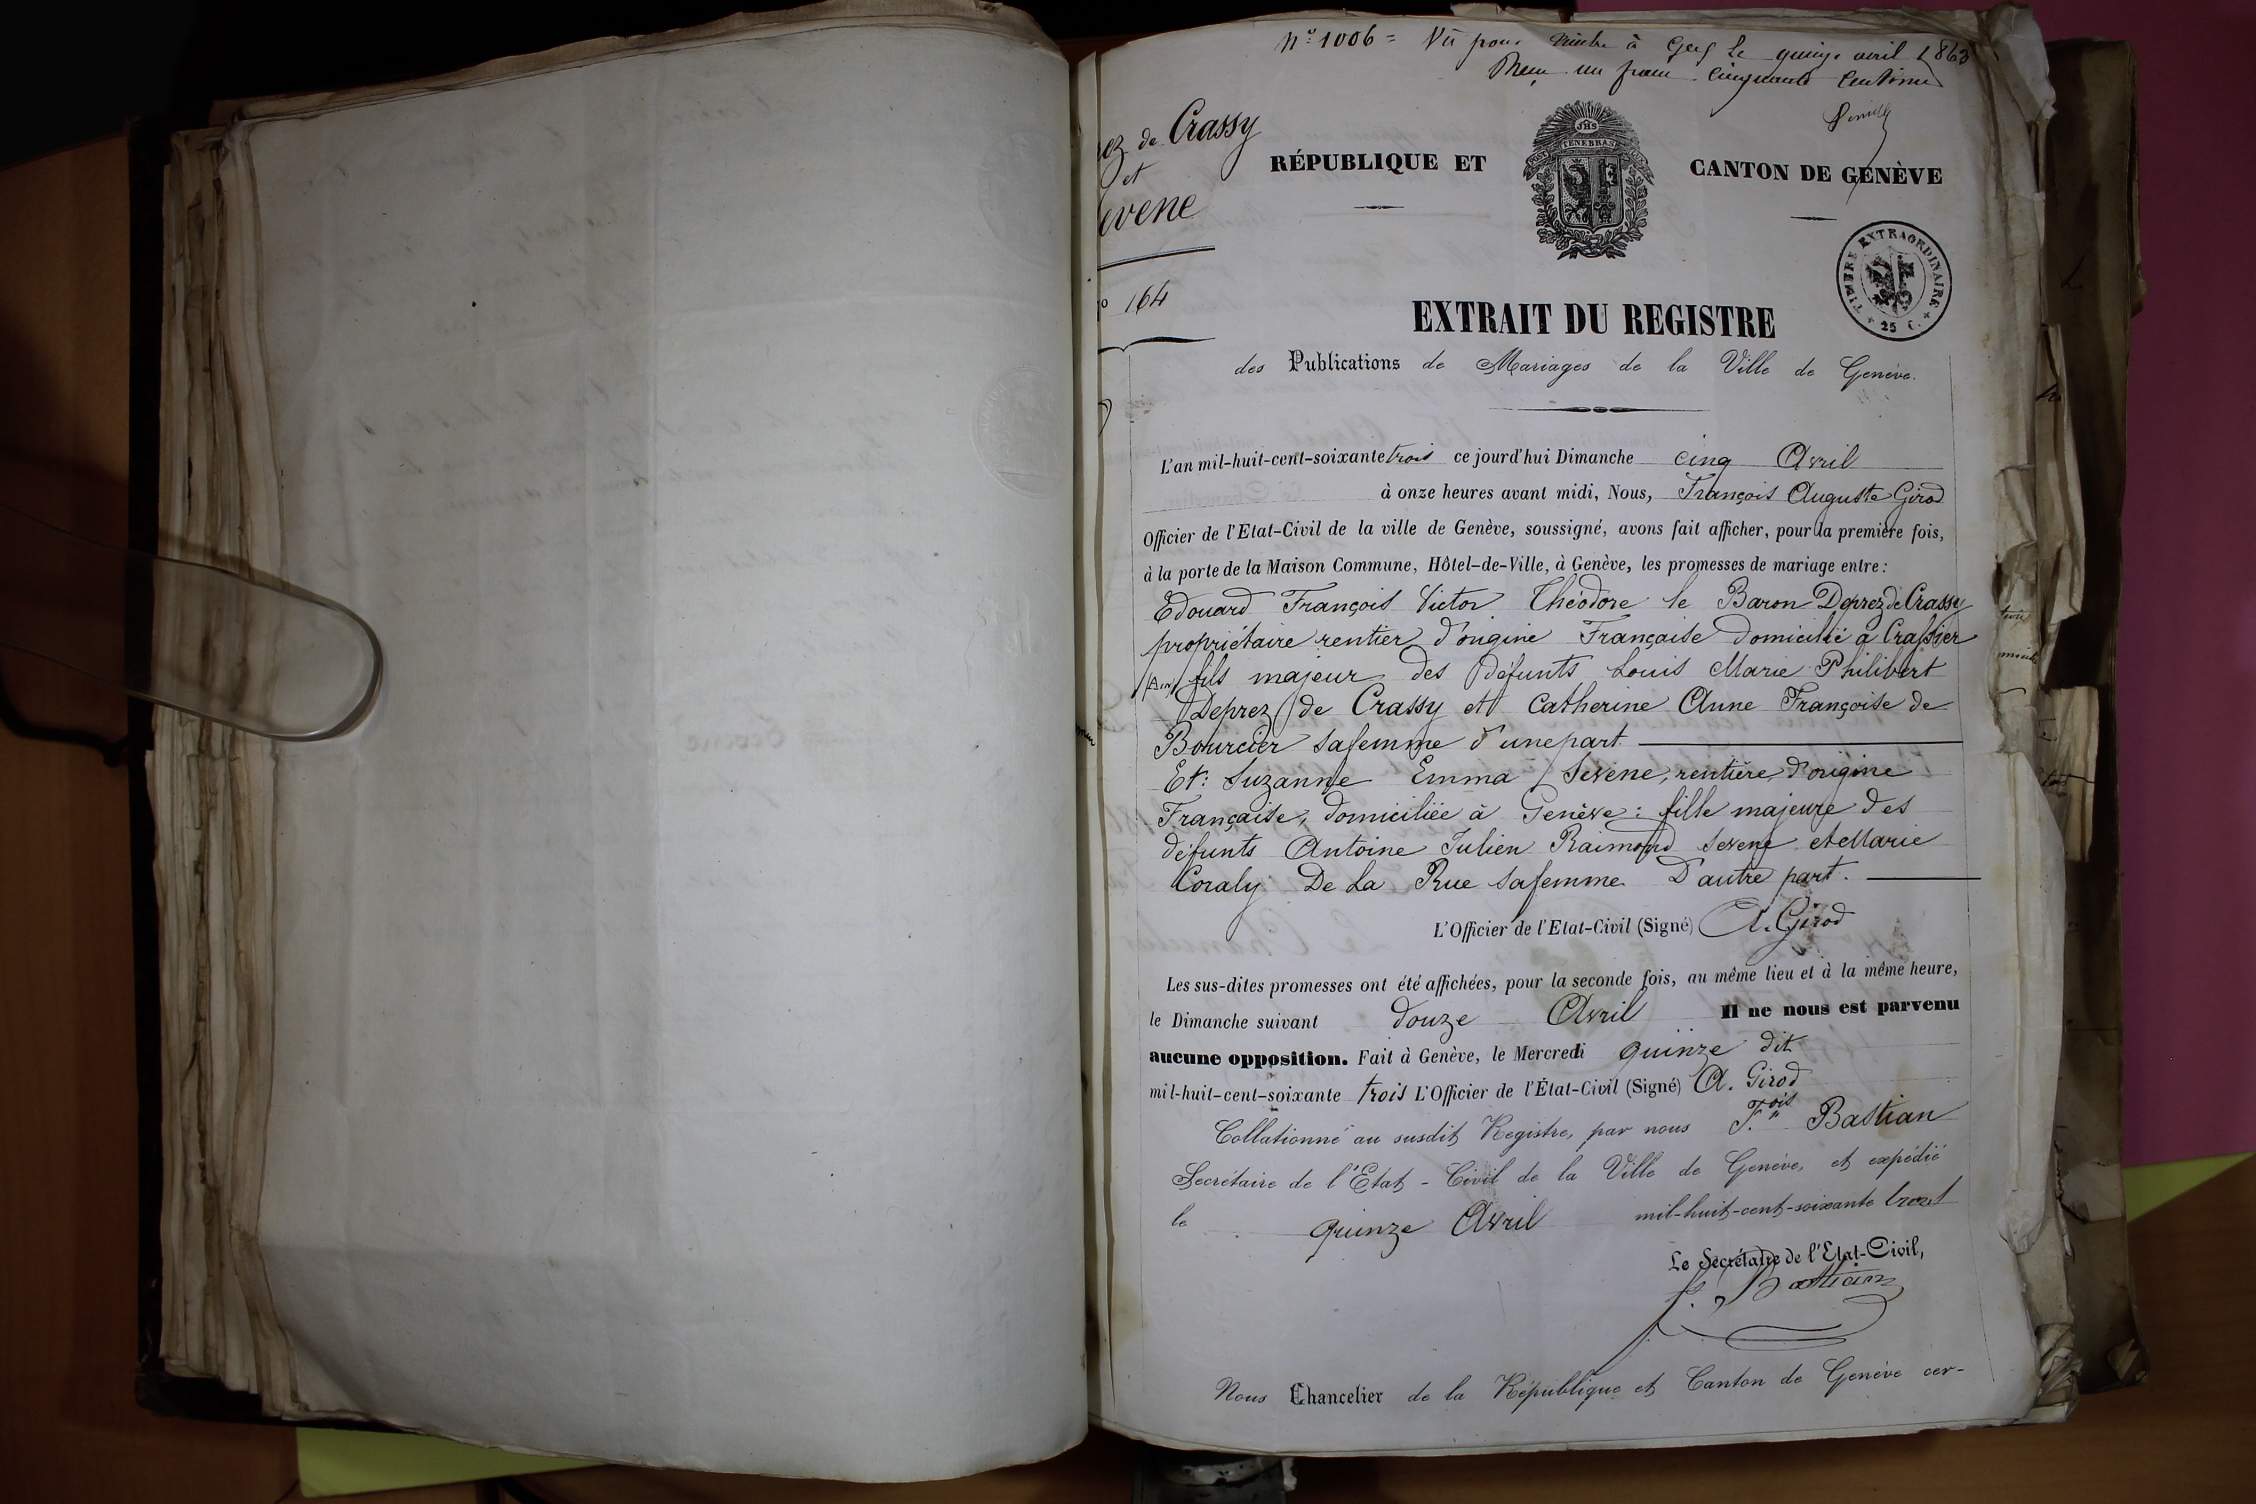 N° 1006 = Vu pour timbre à Gex le quinze avril 1863
Reçu un franc cinquante centimes
ez de Crassy
et
evene
164
RÉPUBLIQUE ET CANTON DE GENÈVE
JHS
TENEBRAS
TIMBRE EXTRAORDINAIRE
25 C.
EXTRAIT DU REGISTRE
des Publications de Mariages de la Ville de Genève.
L'an mil-huit-cent-soixante trois ce jourd'hui Dimanche cinq Avril
à onze heures avant midi, Nous, François Auguste Girod
Officier de l'Etat-Civil de la ville de Genève, soussigné, avons fait afficher, pour la première fois,
à la porte de la Maison Commune, Hôtel-de-Ville, à Genève, les promesses de mariage entre :
Edouard François Victor Théodore le Baron Deprez de Crassy
propriétaire rentier d'origine Française domicilié à Crassier
(Ain) fils majeur des défunts Louis Marie Philibert
Deprez de Crassy et Catherine Anne Françoise de
Bourcier sa femme d'une part
Et: Suzanne Emma Sevene, rentière, d'origine
Française, domiciliée à Genève : fille majeure des
défunts Antoine Julien Raimond Sevene et Marie
Coraly De La Rue sa femme D'autre part.
L'Officier de l'Etat-Civil (Signé) A. Girod
Les sus-dites promesses ont été affichées, pour la seconde fois, au même lieu et à la même heure,
le Dimanche suivant douze Avril Il ne nous est parvenu
aucune opposition. Fait à Genève, le Mercredi quinze dit
mil-huit-cent-soixante trois L'Officier de l'État-Civil (Signé) A. Girod
Collationné au susdit Registre, par nous F.ois Bastian
Secrétaire de l'Etat-Civil de la Ville de Genève, et expédié
le quinze Avril mil-huit-cent-soixante trois
Le Secrétaire de l'Etat-Civil,
f. Bastian
Nous Chancelier de la République et Canton de Genève cer-